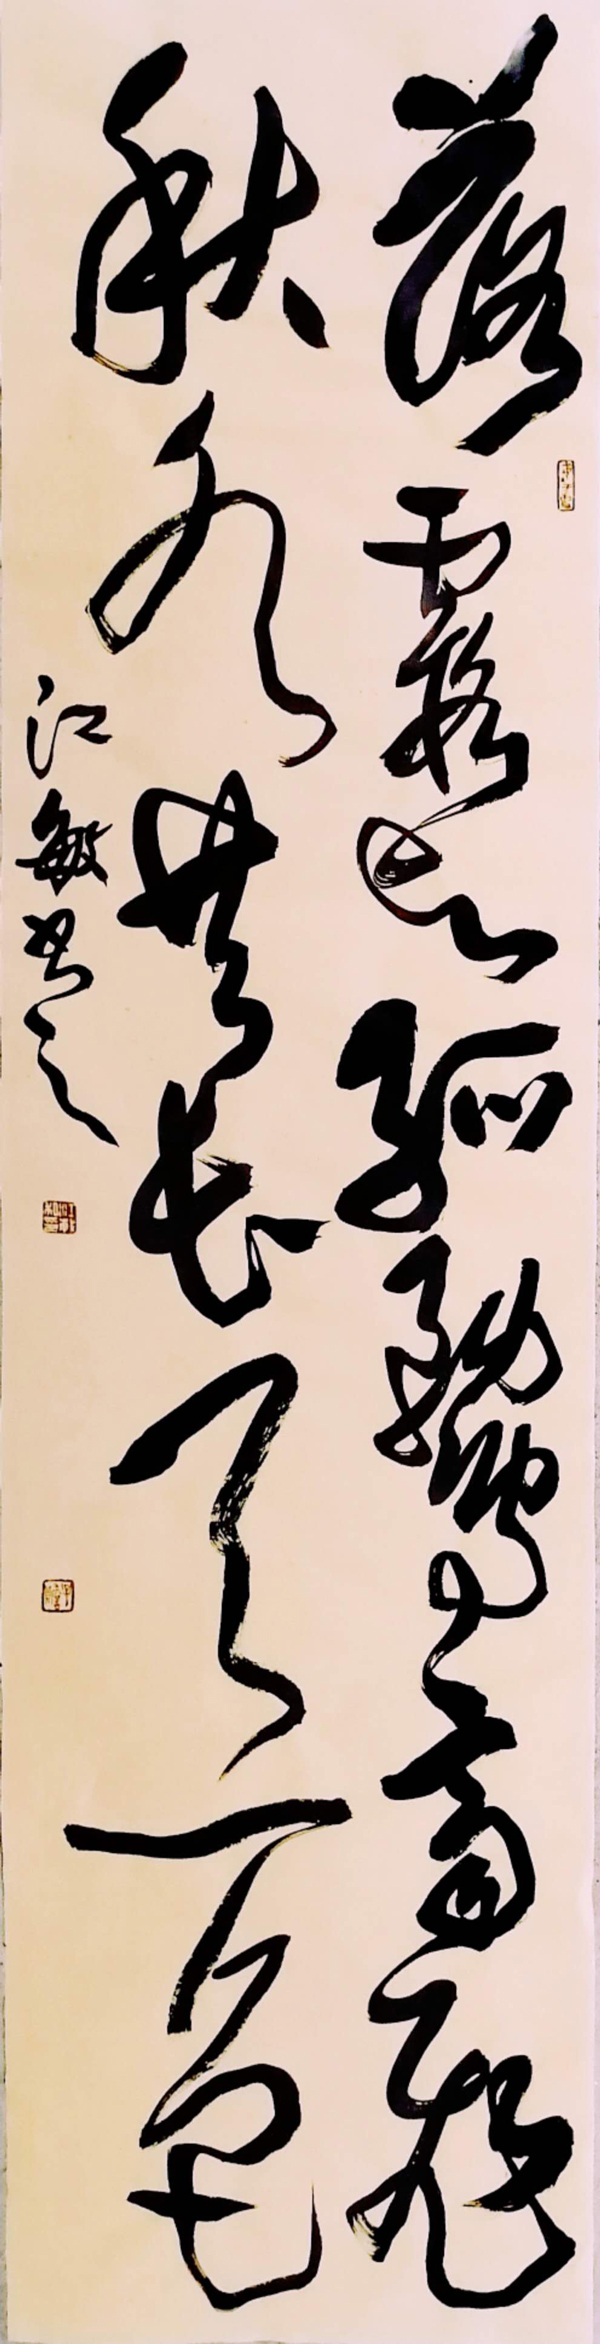 落霞与孤鹜齐飞
秋水共长天一色
江敏书之